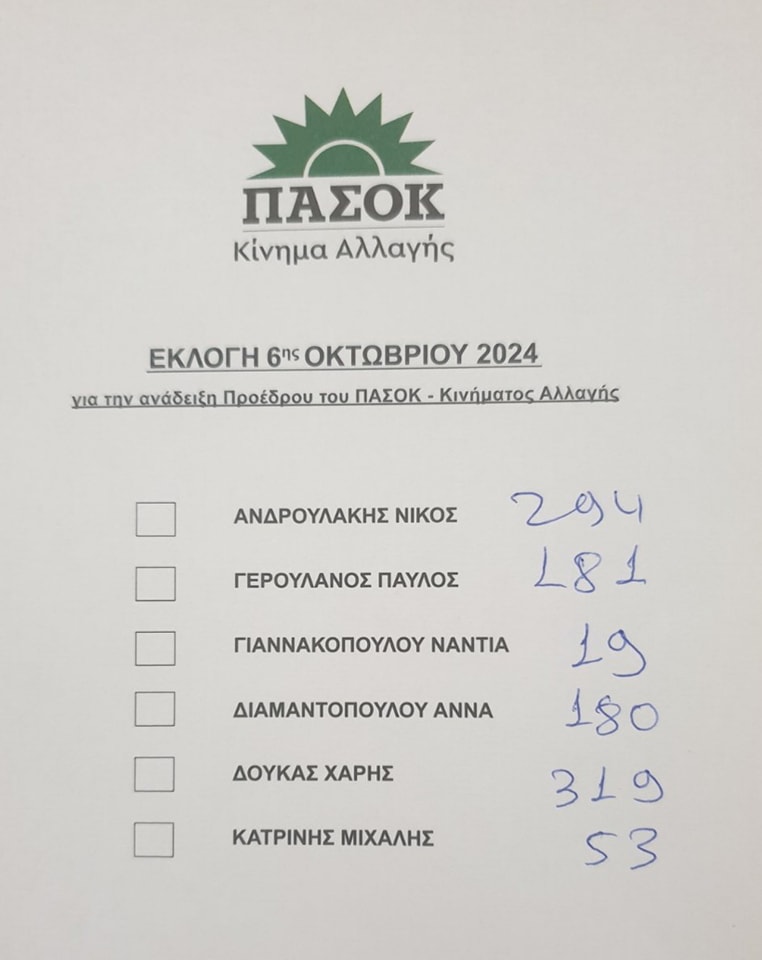 ΠΑΣΟΚ
Κίνημα Αλλαγής
ΕΚΛΟΓΗ 6ης ΟΚΤΩΒΡΙΟΥ 2024
για την ανάδειξη Προέδρου του ΠΑΣΟΚ - Κινήματος Αλλαγής
ΑΝΔΡΟΥΛΑΚΗΣ ΝΙΚΟΣ 294
ΓΕΡΟΥΛΑΝΟΣ ΠΑΥΛΟΣ 181
ΓΙΑΝΝΑΚΟΠΟΥΛΟΥ ΝΑΝΤΙΑ 19
ΔΙΑΜΑΝΤΟΠΟΥΛΟΥ ΑΝΝΑ 180
ΔΟΥΚΑΣ ΧΑΡΗΣ 319
ΚΑΤΡΙΝΗΣ ΜΙΧΑΛΗΣ 53